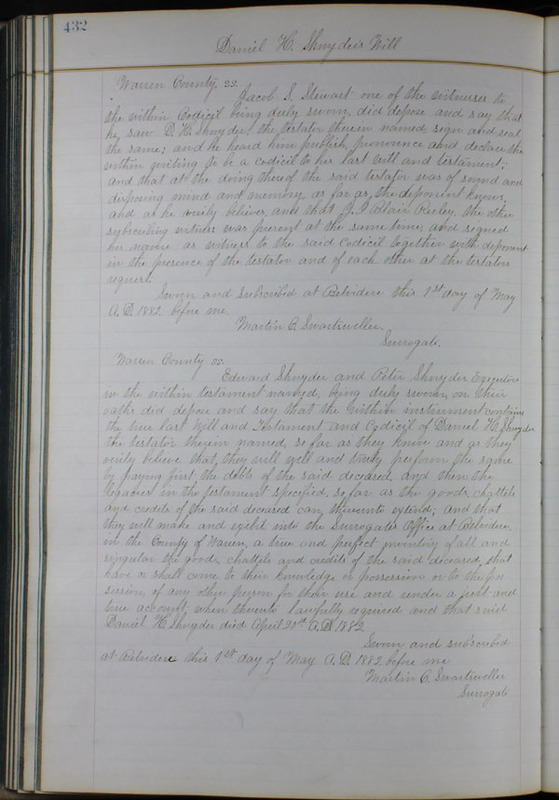 432
Daniel H. Shnyder's Will
Warren County ss.
Jacob S. Stewart one of the witnesses to
the within Codicil being duly sworn, did depose and say that
he, saw D. H. Shnyder the testator therein named, sign and seal
the same; and he heard him publish, pronounce and declare the
within writing to be a codicil to his last Will and testament;
and that at the doing thereof the said testator was of sound and
disposing mind and memory, as far as, the deponent knows,
and as he verily believes, and that J. Blair Reiley, the other
subscribing witness was present at the same time, and signed
his name as witness to the said Codicil together with deponent
in the presence of the testator and of each other at the testators
request.
Sworn and subscribed at Belvidere this 1st day of May
A.D. 1882. before me.
Martin C. Swartsweller.
Surrogate.
Warren County ss.
Edward Shnyder and Peter Shnyder Executors
in the within testament named, being duly sworn, on their
oaths did depose and say that the within instrument contains
the true last Will and Testament and Codicil of Daniel H. Shnyder
the testator therein named, so far as they know and as they
verily believe that, they will well and truly perform the same
by paying first the debts of the said deceased, and then the
legacies in the testament specified, so far as the goods, chattels
and credits of the said deceased can thereunto extend; and that
they will make and exhibit into the Surrogates Office at Belvidere
in the County of Warren, a true and perfect inventory of all and
singular the goods, chattels and credits of the said deceased, that
have or shall come to their knowledge or possession or to the pos
session, of any other person for their use and render a just and
true account, when thereto lawfully required and that said
Daniel H. Shnyder died April A.D. 1882
Sworn and subscribed
at Belvidere this 1st day of May. A.D. 1882 before me
Martin C. Swartsweller
Surrogate